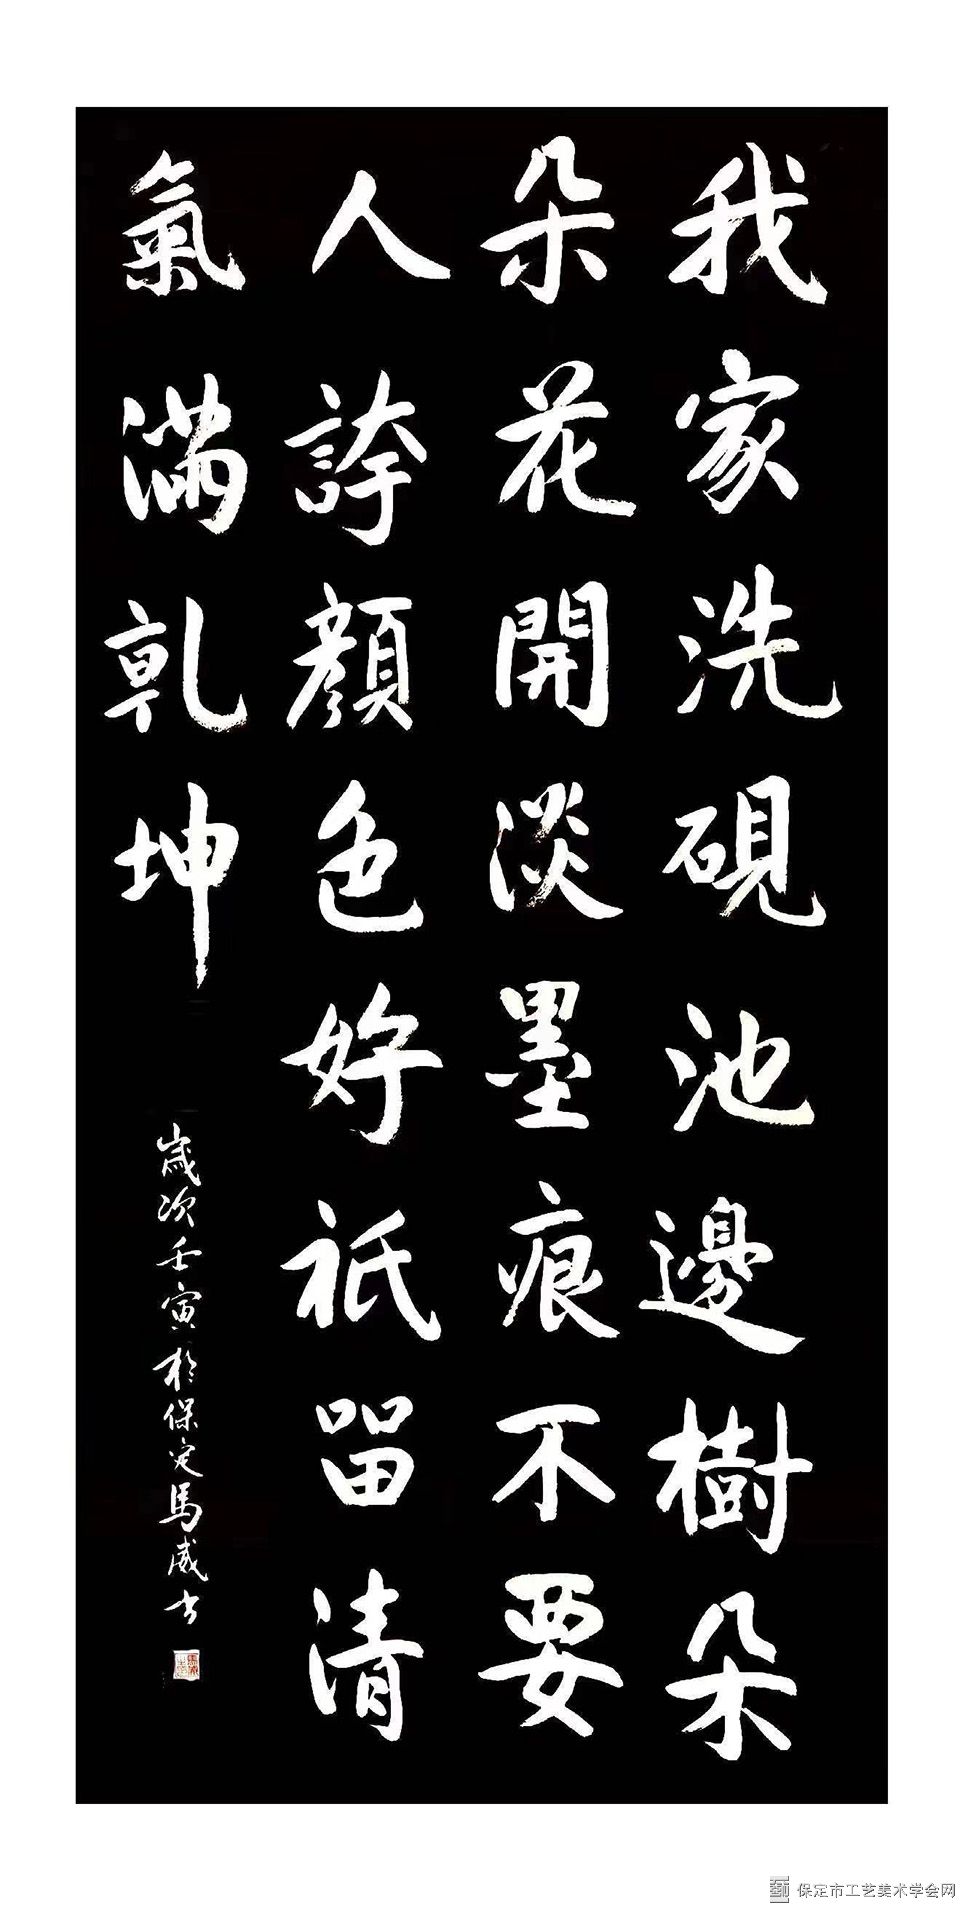 我家洗硯池邊樹朵
朵花開淡墨痕不要
人誇顏色好祇留清
氣滿乾坤
歲次壬寅於保定馬威書
保定市工艺美术学会网